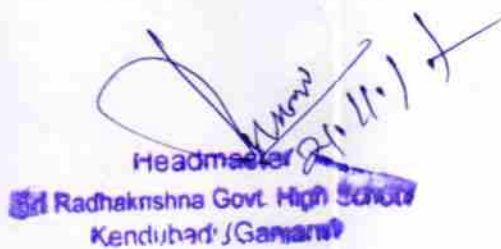 Headmaster
Sri Radhakrishna Govt. High School
Kendubadi (Ganjam)